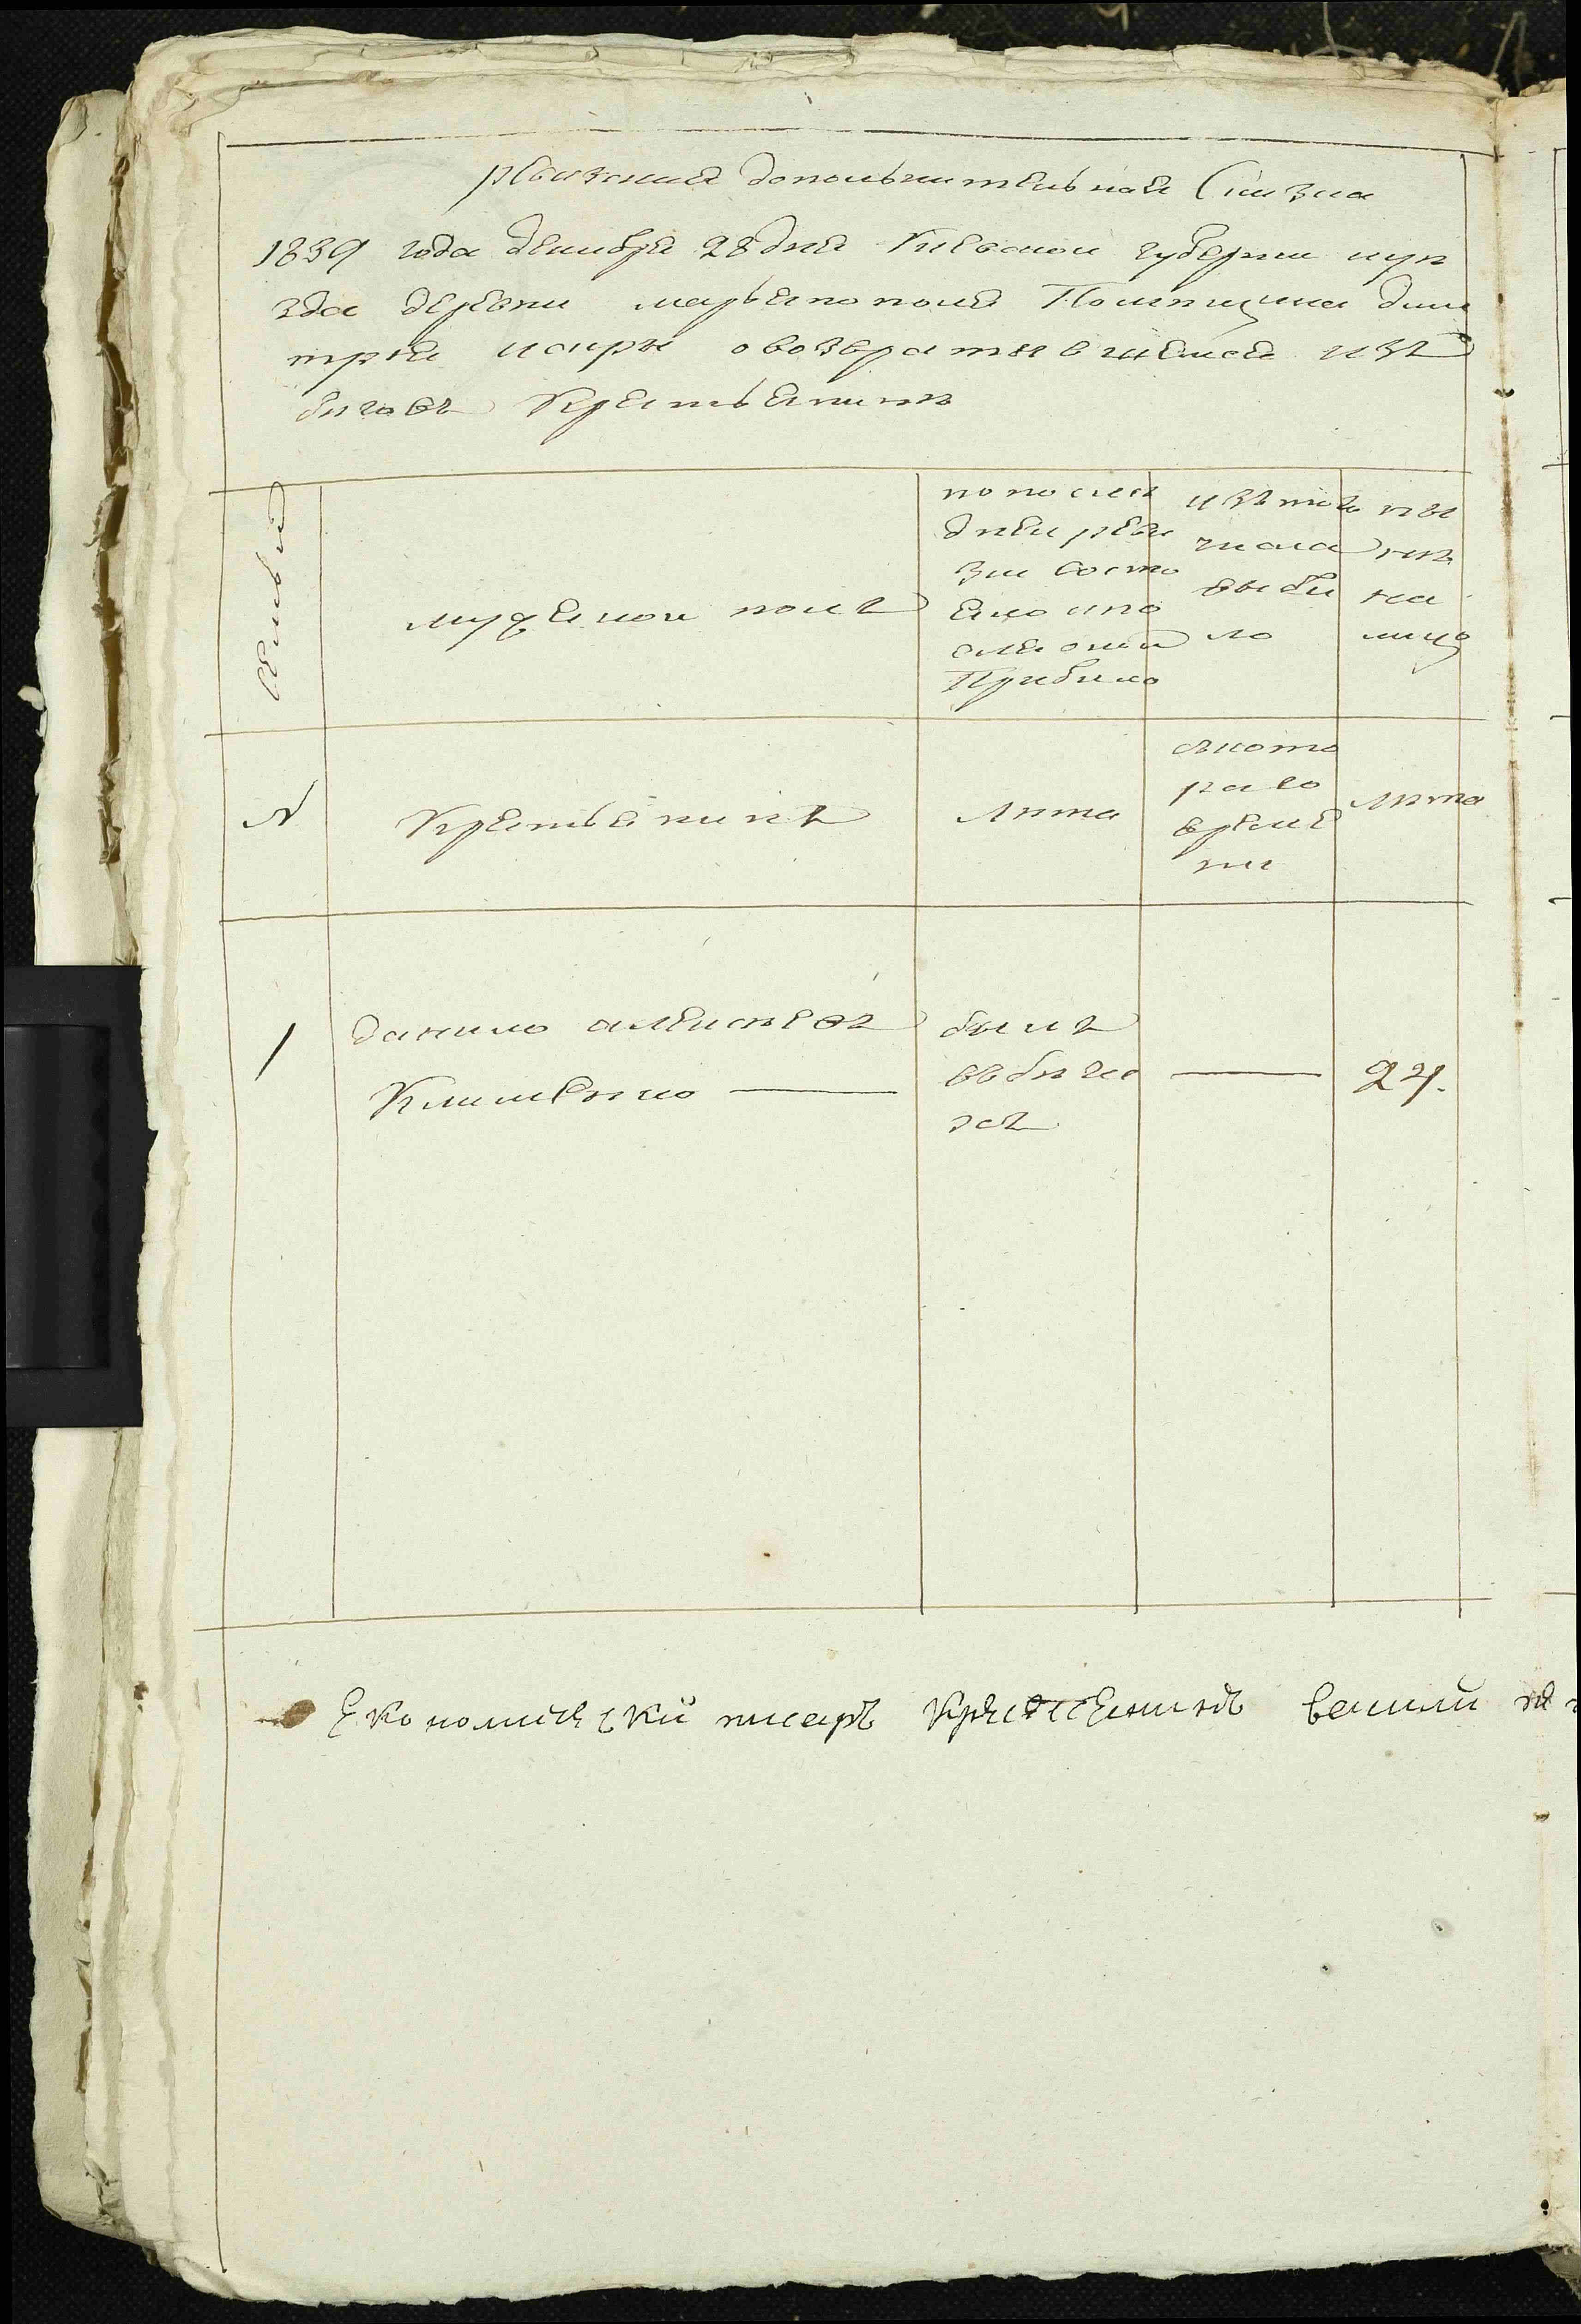 рѣвизская дополнительная сказка
1839 года декабря 28 дня Киевской губернии
деревни Помещика дми
трия о возвратившемся изъ
бегов крестьянине
Семьи
мужеской полъ
по послѣ
дней реви
зии состо
яло и по
сле оной
Прибыло
изъ того
числа
выбы
ло
ны
нѣ
на
лицо
N
Крестьянинъ
Лѣта
съ кото
раго
време
ни
Лѣта
1
данило алексѣевъ
Клименко
былъ
въ бѣга
хъ
24.
Економический писаръ крестьянинъ